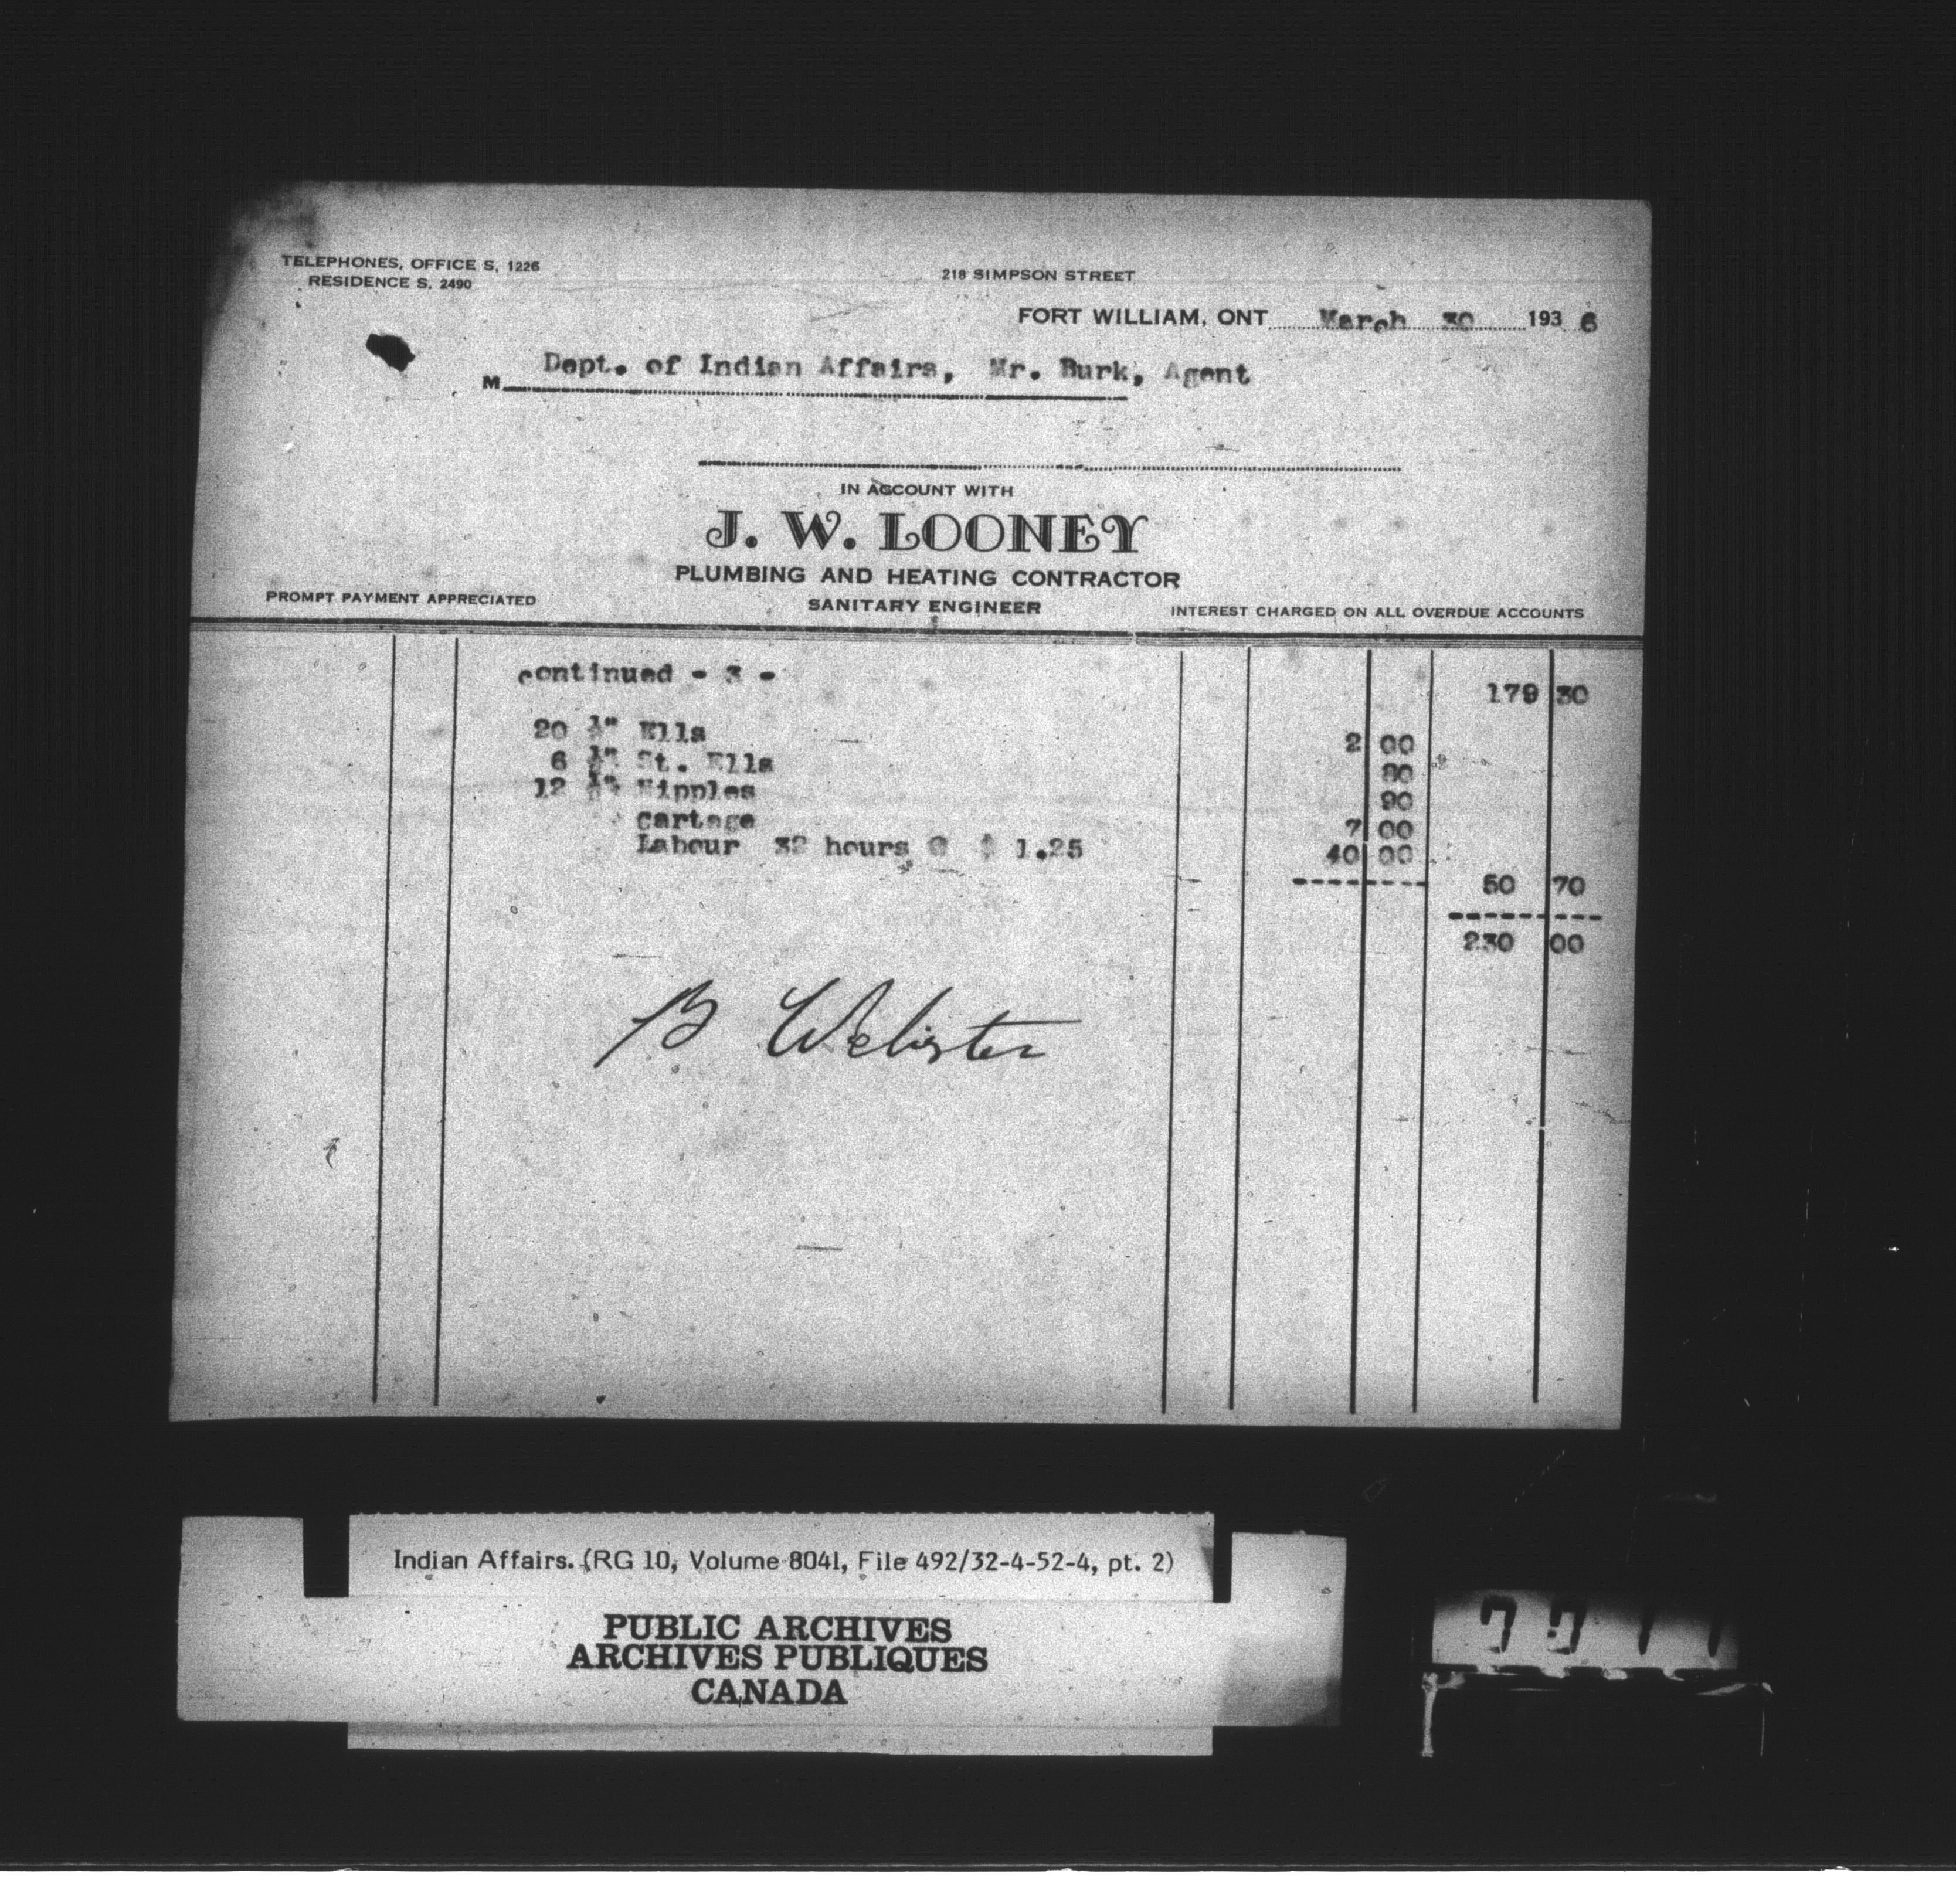 TELEPHONES, OFFICE S. 1226
RESIDENCE S. 2490
218 SIMPSON STREET
FORT WILLIAM, ONT. March 30 1936
M Dept. of Indian Affairs, Mr. Burk, Agent
IN ACCOUNT WITH
J. W. LOONEY
PLUMBING AND HEATING CONTRACTOR
PROMPT PAYMENT APPRECIATED SANITARY ENGINEER INTEREST CHARGED ON ALL OVERDUE ACCOUNTS
continued - 3 - 179 30
20 ½" Ells 2 00
6 ½" St. Ells 80
12 ½" Nipples 90
cartage 7 00
Labour 32 hours @ $ 1.25 40 00
50 70
230 00
B Webster
Indian Affairs. (RG 10, Volume 8041, File 492/32-4-52-4, pt. 2)
PUBLIC ARCHIVES
ARCHIVES PUBLIQUES
CANADA